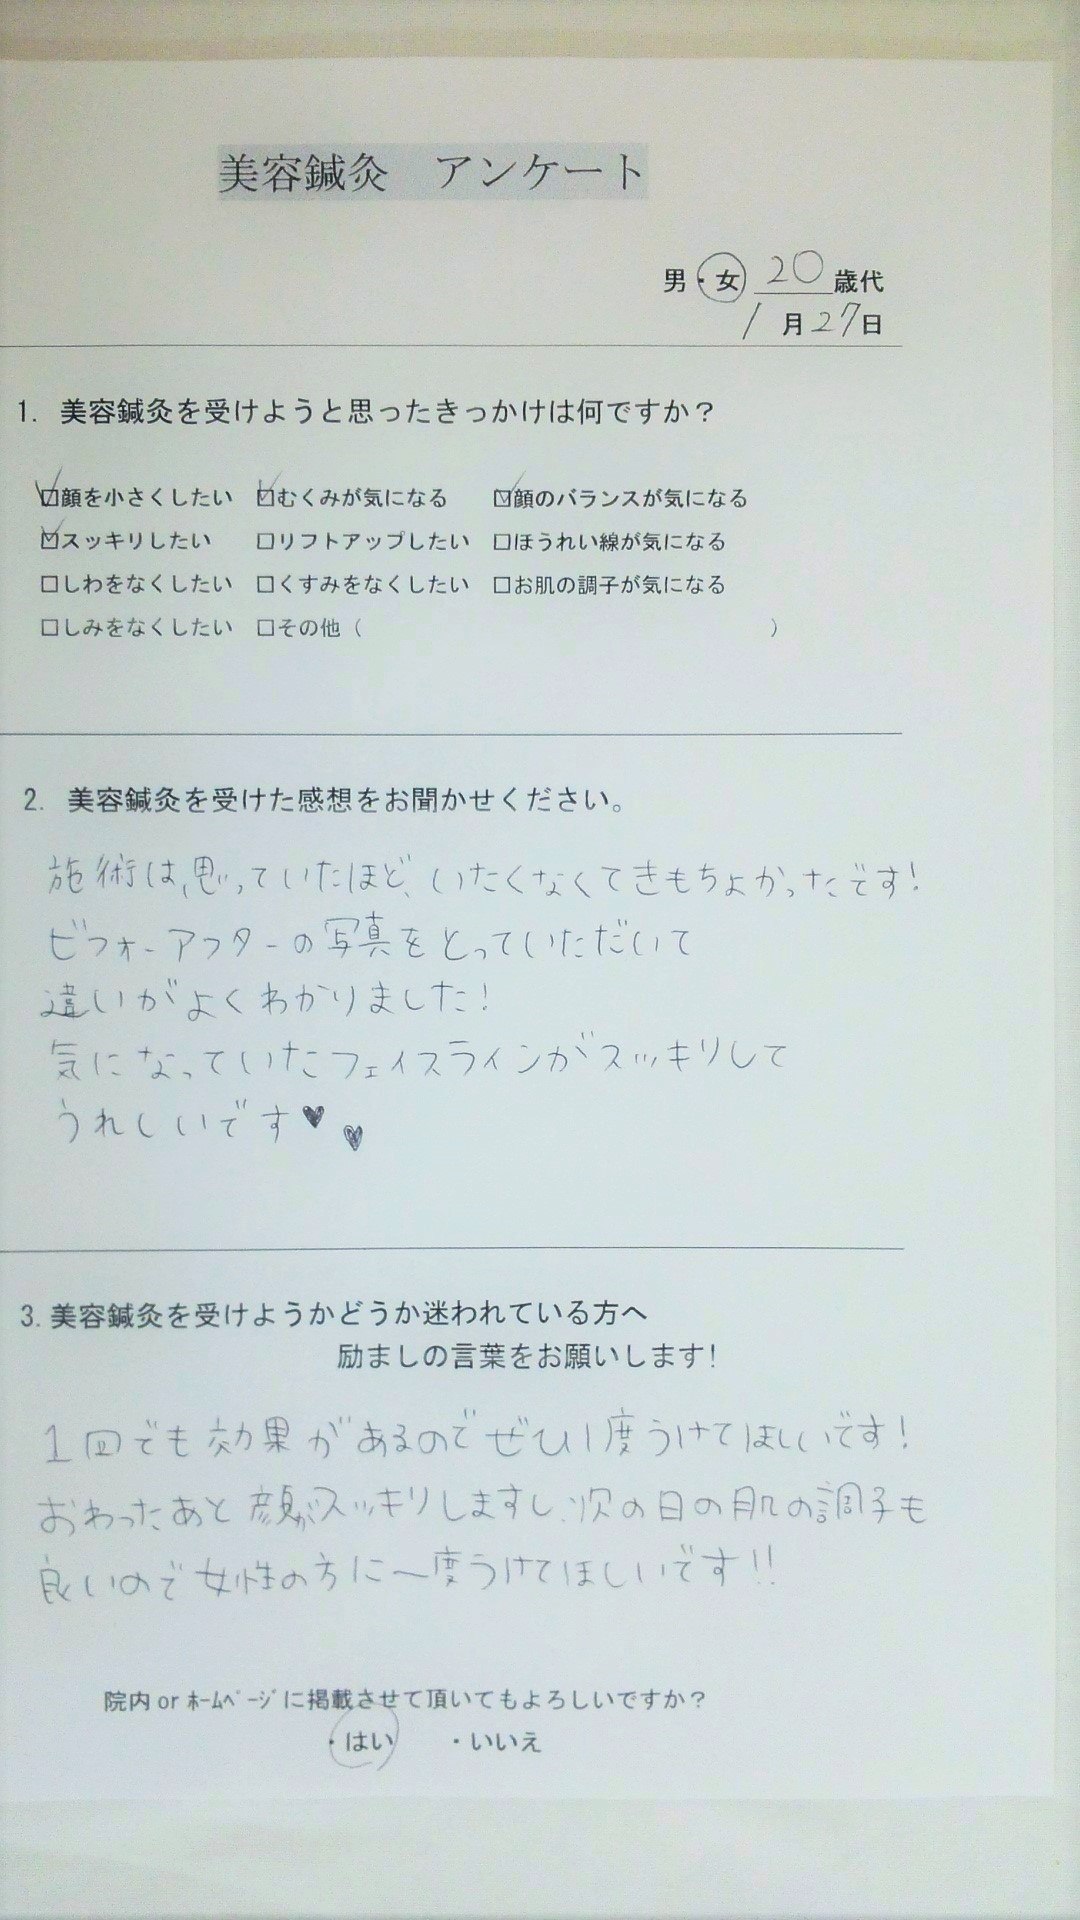 美容鍼灸　アンケート
男・女 20歳代
1月27日
1. 美容鍼灸を受けようと思ったきっかけは何ですか？
☑顔を小さくしたい ☑むくみが気になる ☑顔のバランスが気になる
☑スッキリしたい □リフトアップしたい □ほうれい線が気になる
□しわをなくしたい □くすみをなくしたい □お肌の調子が気になる
□しみをなくしたい □その他（　　　　　）
2. 美容鍼灸を受けた感想をお聞かせください。
施術は、思っていたほど、いたくなくてきもちよかったです！
ビフォーアフターの写真をとっていただいて
違いがよくわかりました！
気になっていたフェイスラインがスッキリして
うれしいです♥♥
3. 美容鍼灸を受けようかどうか迷われている方へ
励ましの言葉をお願いします！
1回でも効果があるのでぜひ1度うけてほしいです！
おわったあと顔がスッキリしますし、次の日の肌の調子も
良いので女性の方に一度うけてほしいです!!
院内or ﾎｰﾑﾍﾟｰｼﾞに掲載させて頂いてもよろしいですか？
・はい　・いいえ